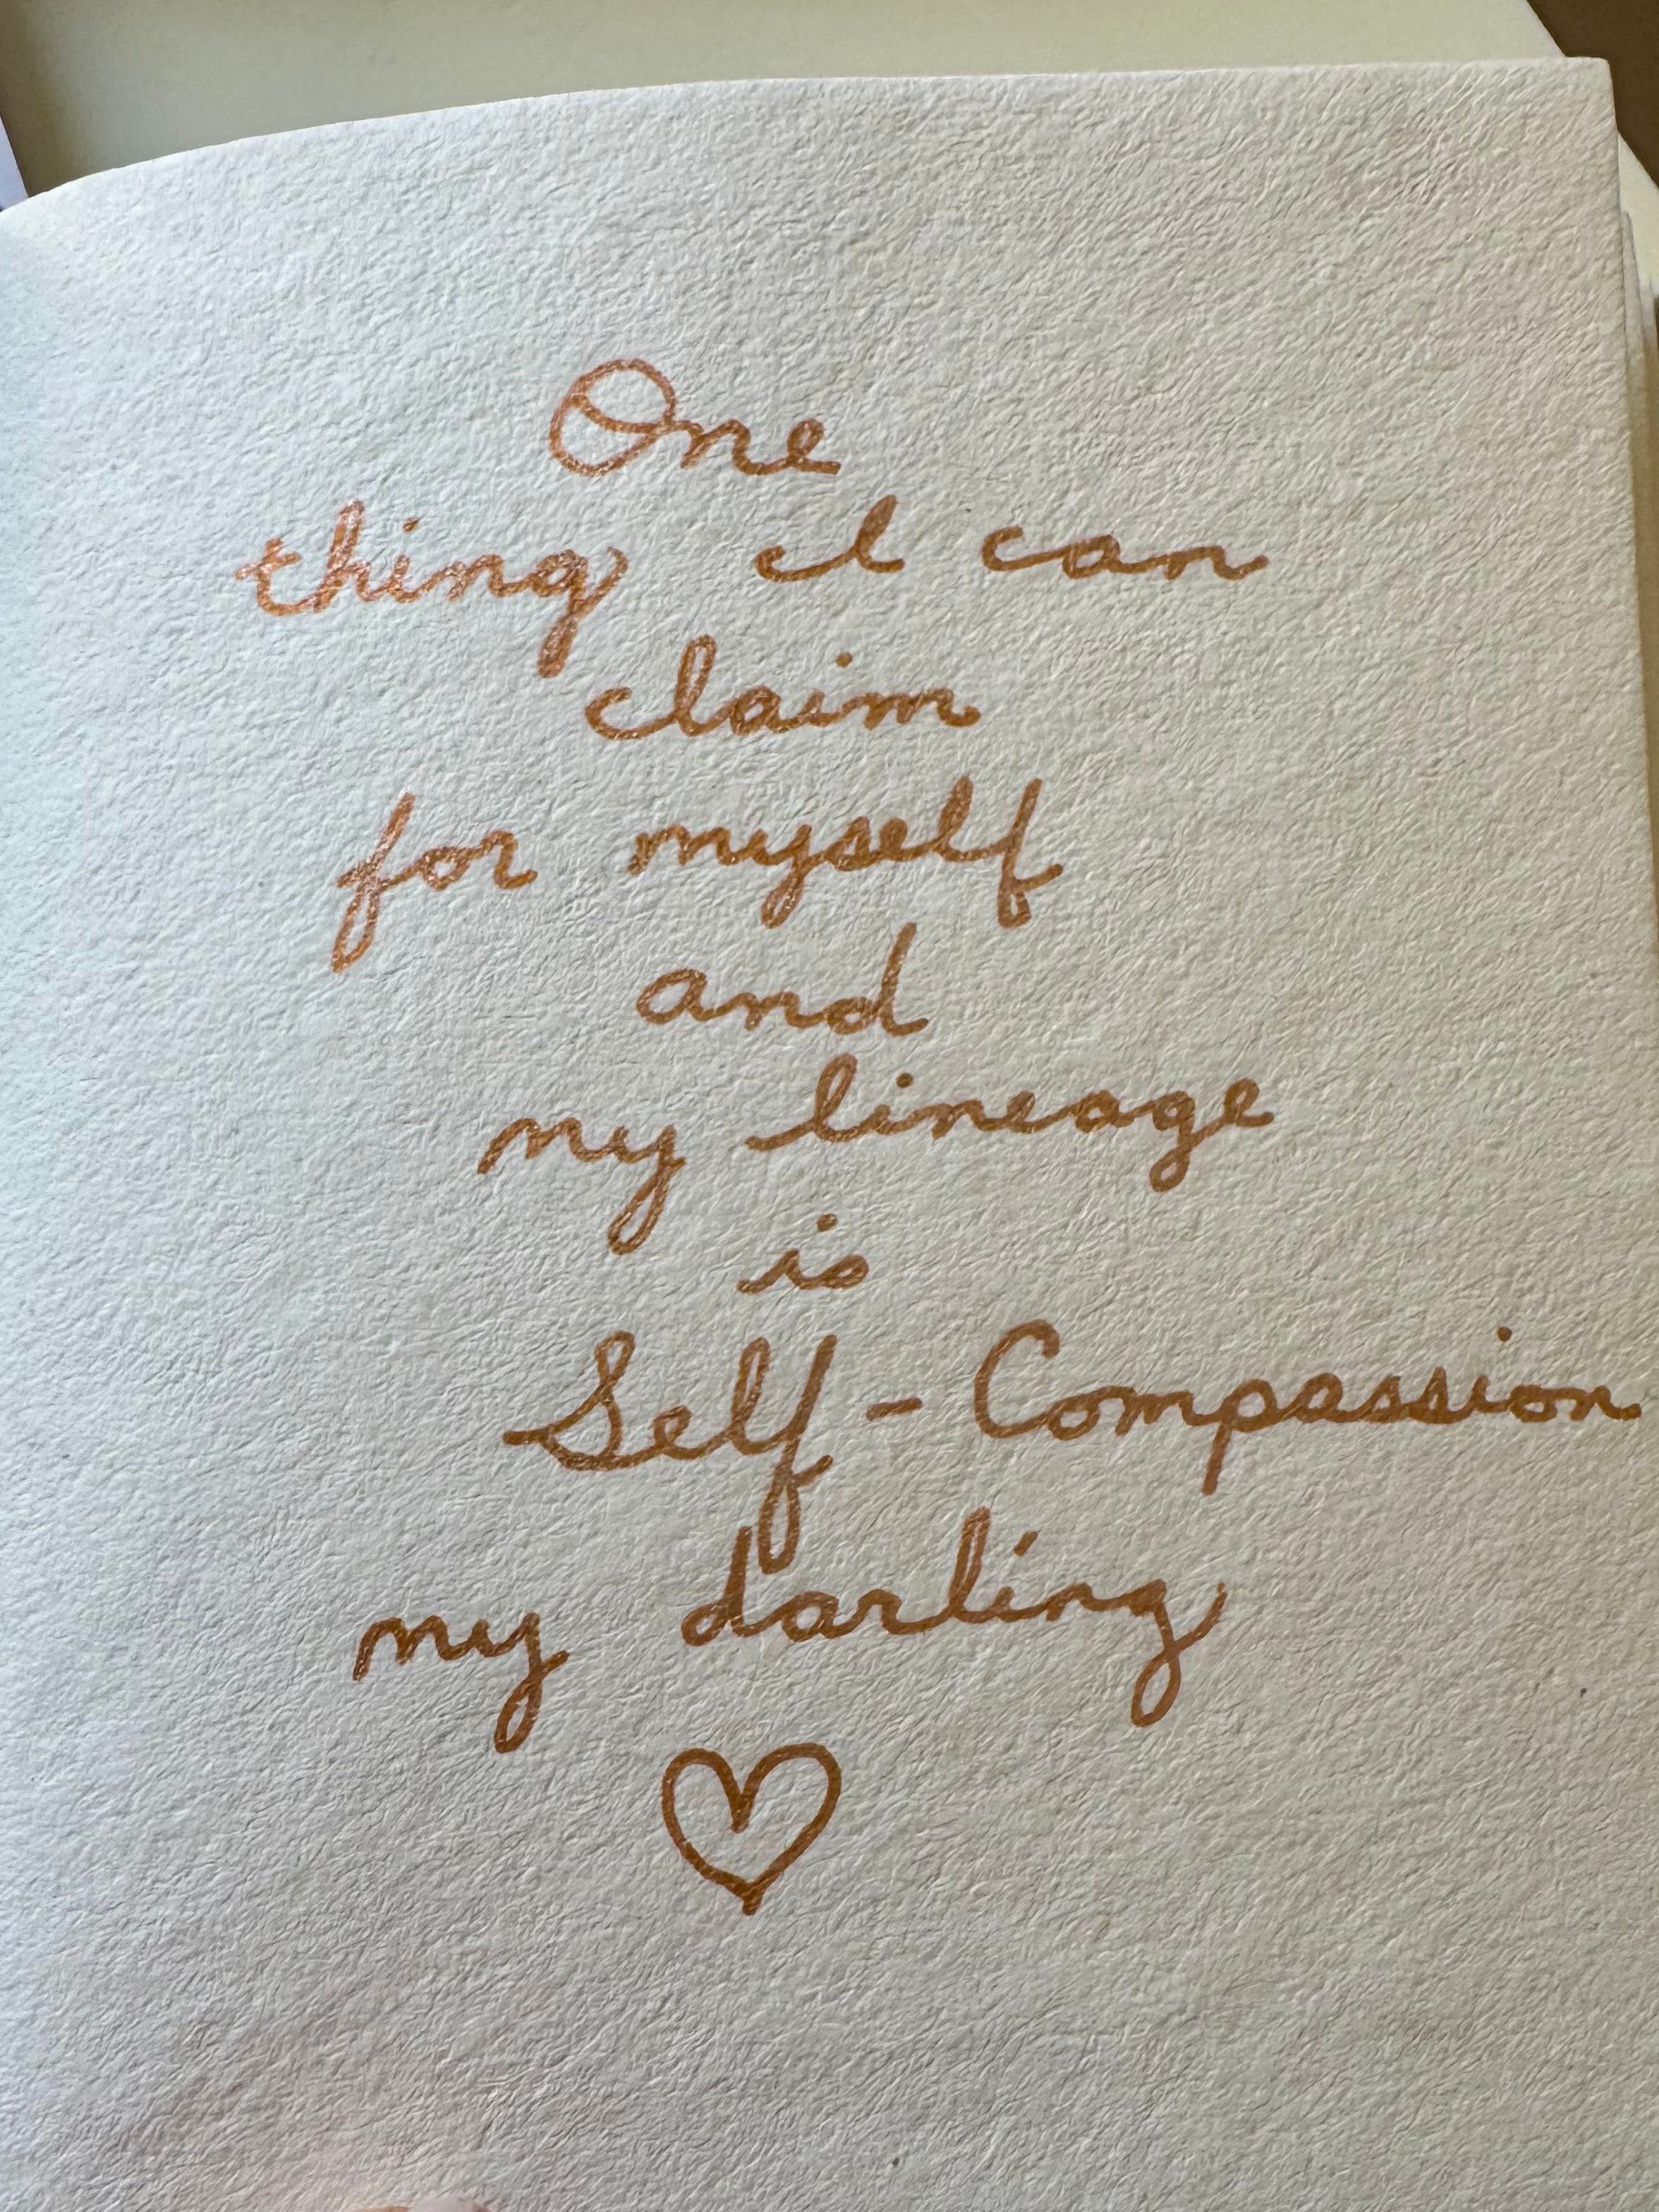 One
thing I can
claim
for myself
and
my lineage
is
Self-Compassion
my darling